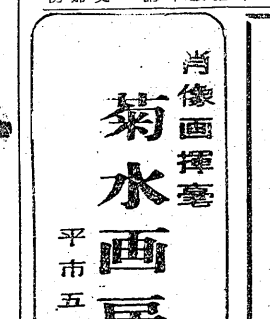 肖像画揮毫
菊水画
平市五